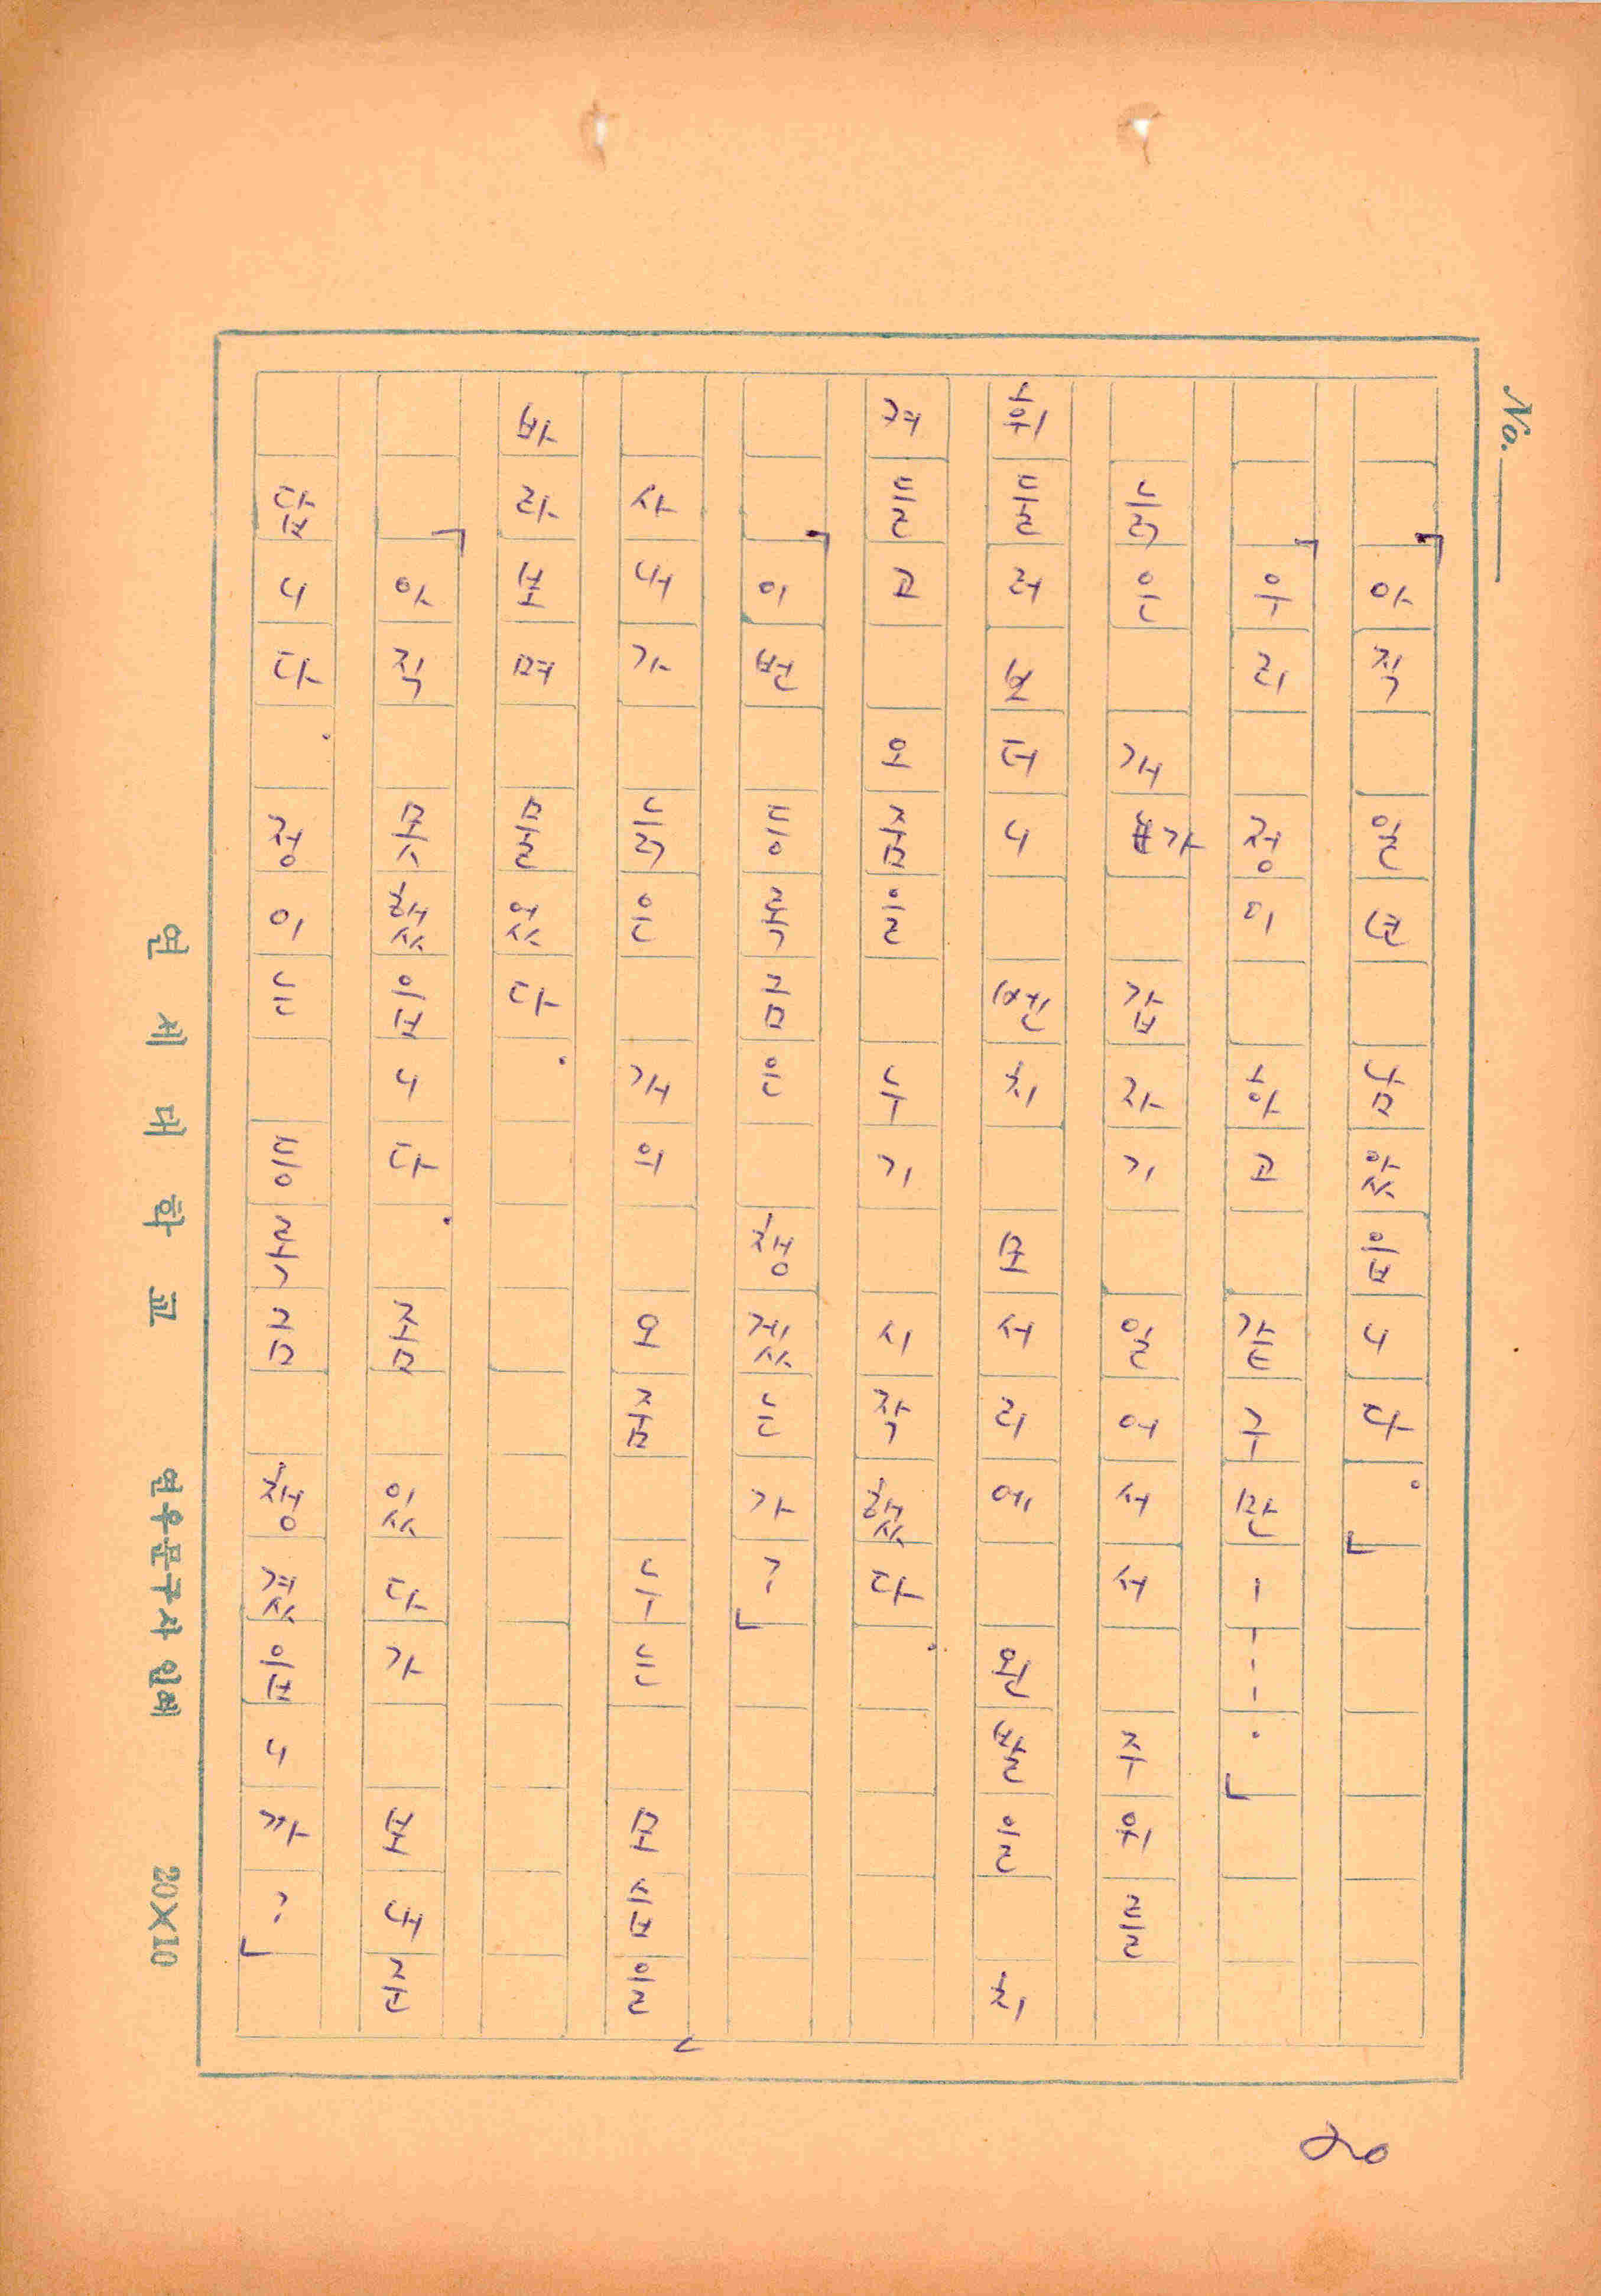 「아직 남았읍니다.」
「우리 정이 하고 같구만ㅡ---.」
늙은 개가 갑자기 일어서서 주위를
휘둘러 보더니 벤치 모서리에 왼발을 치
켜들고 오줌을 누기 시작했다.
「이번 등록금은 챙겼는가?」
사내가 늙은 개의 오줌 누는 모습을
바라보며 물었다.
「아직 못했읍니다. 점 있다가 보내준
답니다. 정이는 등록금 챙겼읍니까?」
No.
20
연세대학교 연우문구사 인쇄 20×10